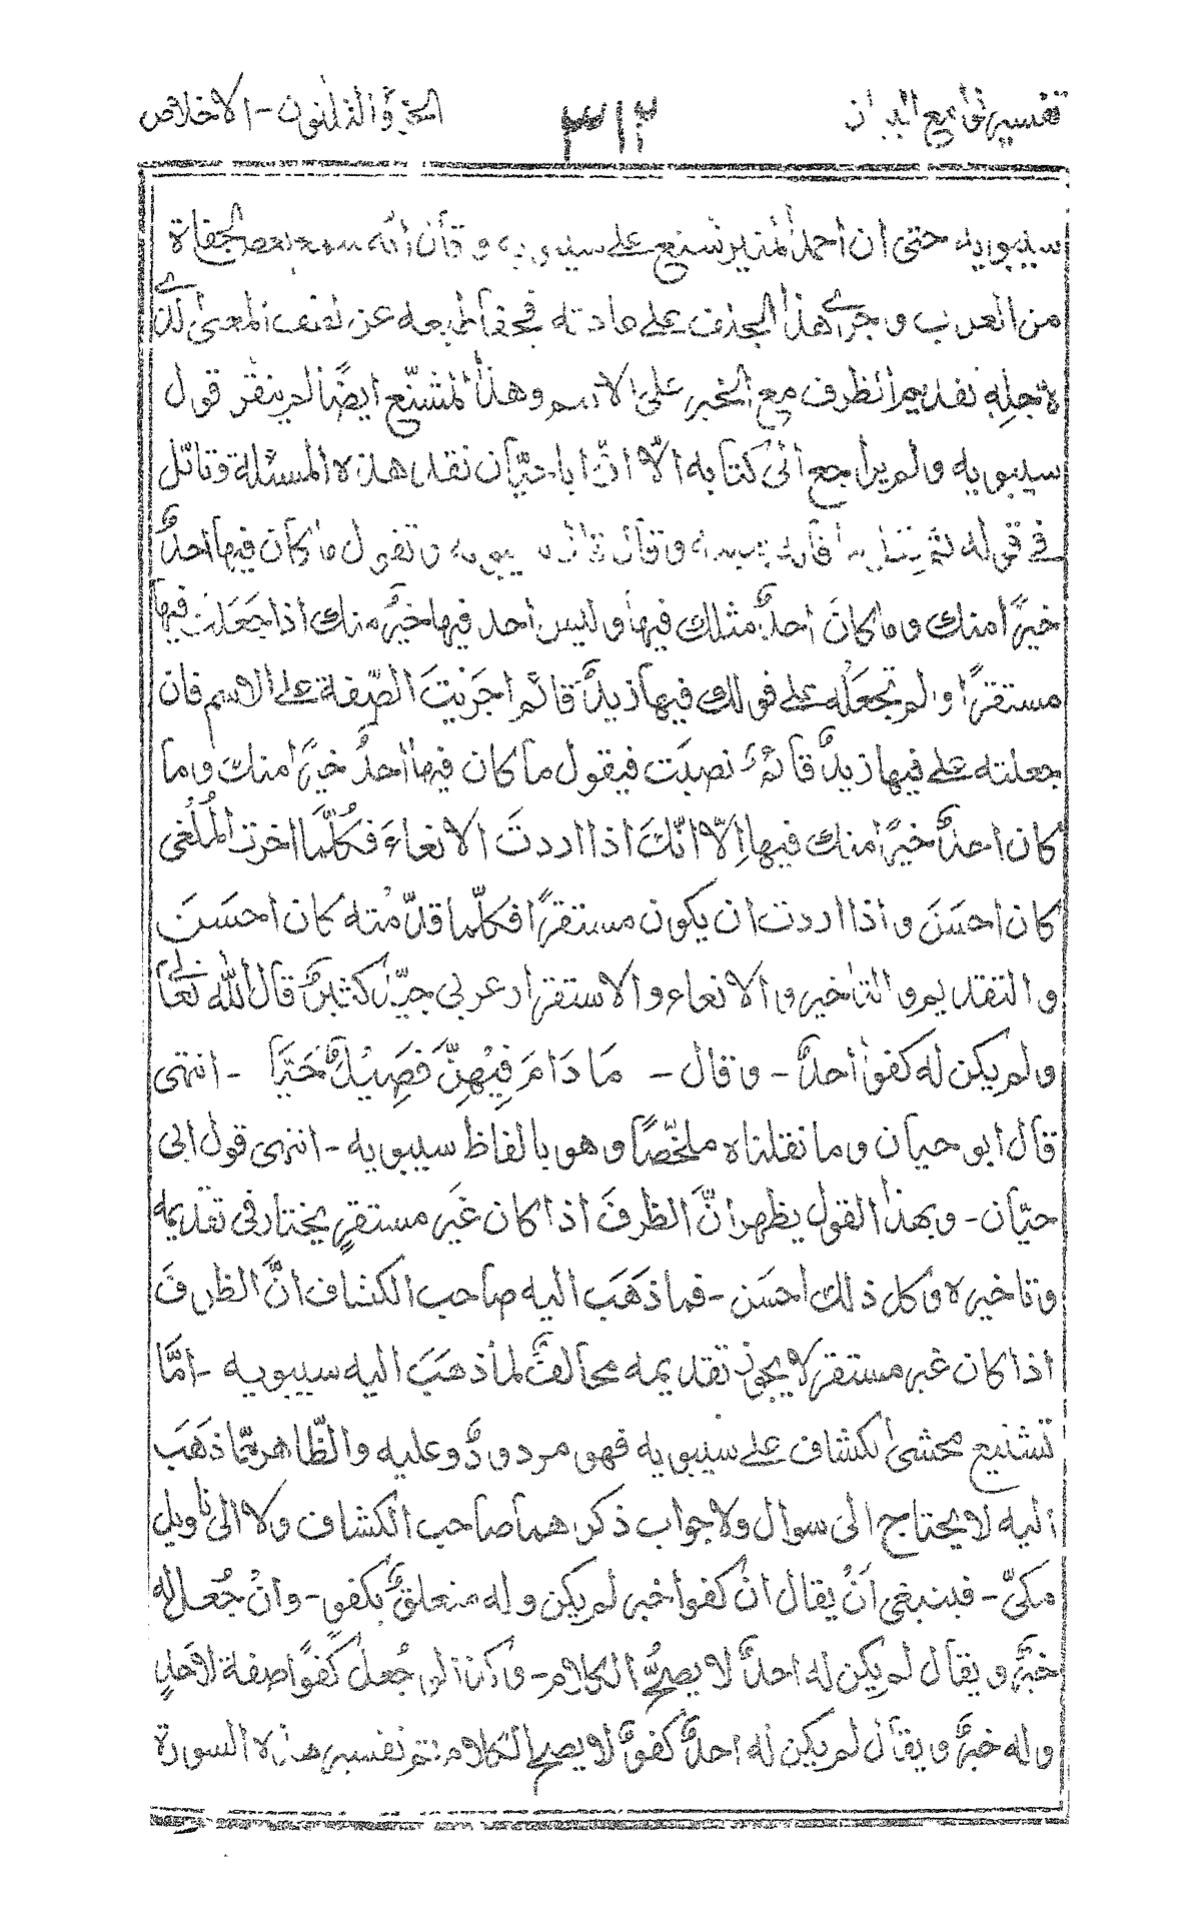 تفسير جامع البيان ٣١٢ الجزؤ الثلثون - الاخلاص
سيبويه حتى ان احمد المنير شنع على سيبويه وقال انه سمع بعض الجفاة
من العرب وجرى هذا الجلف على عادته فجفا طبعه عن لطف المعنى الذي
لاجله تقديم الظرف مع الخبر على الاسم وهذا المشنّع ايضًا لم ينقر قول
سيبويه ولم يراجع الى كتابه الّا انّ ابا حيّان نقد هذه المسئلة وتأمّل
في قوله ثم وقال سيبويه وتقول ما كان فيها احدٌ
خيرًا منك وما كانَ احدٌ مثلك فيها وليس احد فيها خيرٌ منك اذا جَعَلتَ فيها
مستقرًا ولم تجعَله على قولك فيها زيدٌ قائم اجرَيتَ الصّفة على الاسم فان
جعلته على فيها زيدٌ قائمٌ نصبَت فيقول ما كان فيها احدٌ خيرًا منك وما
كان احدٌ خيرًا منك فيها اِلّا انّكَ اذا اردتَ الالغاءَ فكُلَّما اخرتَ المُلْغى
كان احسَنَ واذا اردت ان يكون مستقرًا فكلّما قدّمْته كان احسَنَ
والتقديم والتاخير والالغاء والاستقرار عربى جيّدٌ كثيرٌ قال الله تعالى
ولم يكن له كفوا احدٌ - وقال - مَا دَامَ فِيْهِنَّ فَصِيْلٌ حَيًّا - انتهى
قال ابو حيان وما نقلناه ملخّصًا وهو بالفاظ سيبويه - انتهى قول ابى
حيّان - وبهذا القول يظهر انَّ الظرفَ اذا كان غَير مستقرٍ يختار فى تقديمه
وتاخيره وكل ذلك احسَن - فما ذهَبَ اليه صاحب الكشاف انَّ الظرفَ
اذا كان غير مستقر لا يجوز تقديمه مخالفٌ لما ذهَبَ اليه سيبويه - امَّا
تشنيع محشى الكشاف على سيبويه فهو مردودٌ عليه والظّاهر ممّا ذهَبَ
اليه لا يحتاج الى سوال ولا جواب ذكرهما صاحب الكشاف ولا الى تاويل
مكىّ - فينبغى اَنْ يقال انّ كفوا خبر لم يكن وله متعلقٌ بكفوٍ - وانْ جُعل له
خبرٌ ويقال لم يكن له احدٌ لا يصحُّ الكلام - وكذا لو جُعل كفوًا صفة لاحدٍ
وله خبرٌ ويقال لم يكن له احدٌ كفوٌ لا يصح الكلام تم تفسير هذه السورة